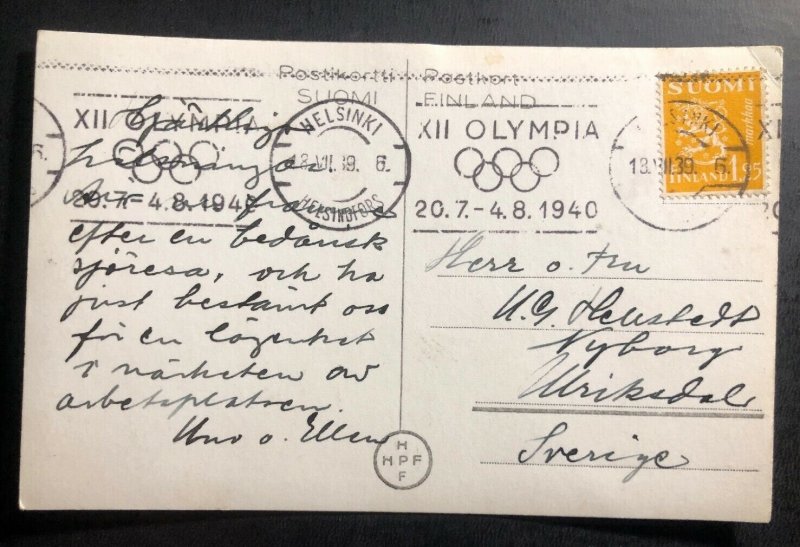 Postikortti Postkort
SUOMI FINLAND
XII OLYMPIA
20.7.-4.8.1940
HELSINKI
18.VII.39. 6.
HELSINGFORS
XII OLYMPIA
20.7.-4.8.1940
SINKI
18.VII.39. 6.
SUOMI
markkaa
FINLAND 1.25
Hjärtliga
hälsningar
efter en bedårisk
sjöresa, och ha
just bestämt oss
för en lägenhet
i närheten av
arbetsplatsen.
Uno o. Ellen
H
HPF
F
Herr o. Fru
U.G. Henstedt
Nyborg
Ulriksdal
Sverige